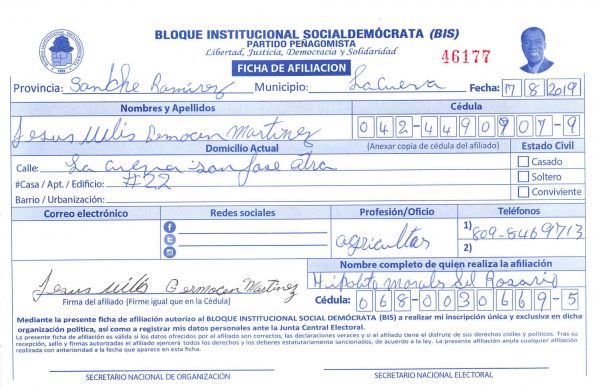 BLOQUE INSTITUCIONAL SOCIALDEMÓCRATA (BIS)
PARTIDO PEÑAGOMISTA
Libertad, Justicia, Democracia y Solidaridad
46177
FICHA DE AFILIACION
Provincia: Sanche Ramirez Municipio: La Cueva Fecha: 7/8/2019
Nombres y Apellidos Cédula
Jesus Martinez 042-4490907-9
Domicilio Actual (Anexar copia de cédula del afiliado) Estado Civil
Calle: La cueva san jose Casado
#Casa / Apt. / Edificio: #22 Soltero
Barrio / Urbanización: Conviviente
Correo electrónico Redes sociales Profesión/Oficio Teléfonos
agricultar 1) 809-8469713
2)
Nombre completo de quien realiza la afiliación
Jesus Martinez Hipolito Morales del Rosario
Firma del afiliado (Firme igual que en la Cédula) Cédula: 068-0030669-5
Mediante la presente ficha de afiliación autorizo al BLOQUE INSTITUCIONAL SOCIAL DEMÓCRATA (BIS) a realizar mi inscripción única y exclusiva en dicha
organización política, así como a registrar mis datos personales ante la Junta Central Electoral.
La presente ficha de afiliación es válida si los datos ofrecidos por el afiliado son correctos, las declaraciones veraces y si el afiliado tiene el disfrute de sus derechos civiles y políticos. Tras su
recepción, sello y firmas autorizadas el afiliado ejercerá todos los derechos y los deberes estatutariamente sancionados, de acuerdo a la ley. La presente afiliación anula cualquier afiliación
realizada con anterioridad a la fecha que aparece en esta ficha.
SECRETARIO NACIONAL DE ORGANIZACIÓN SECRETARIO NACIONAL ELECTORAL